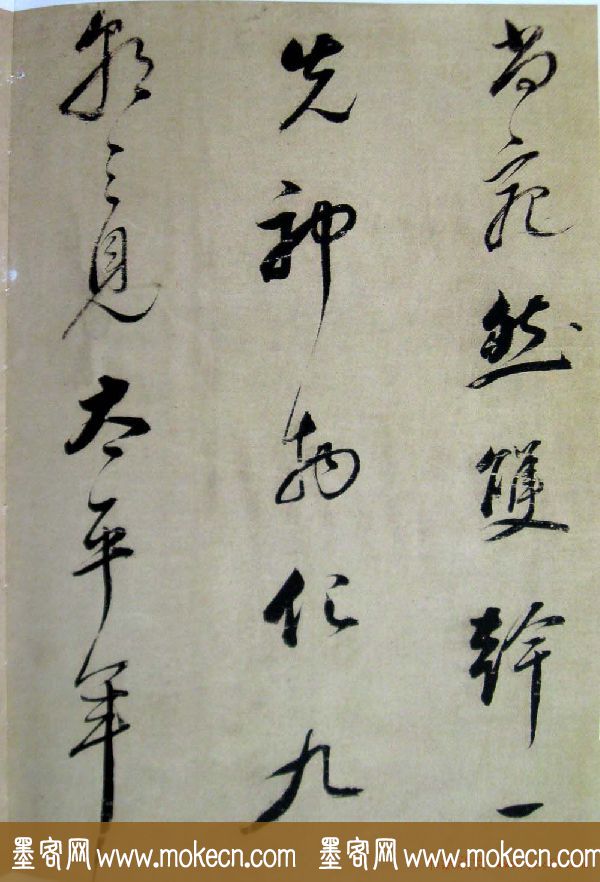 尚宛然雙幹一
先神物化九
朝三見太平年
墨客网 www.mokecn.com 墨客网 www.mokecn.com